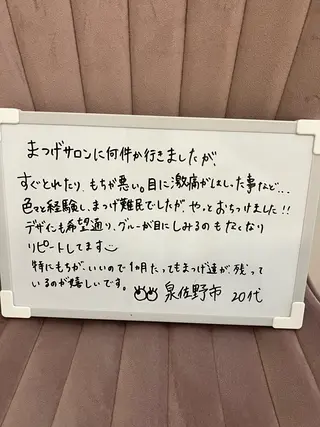 まつげサロンに何件か行きましたが、
すぐとれたり、もちが悪い。目に激痛がはしった事など…
色々と経験し、まつげ難民でしたが、やっとおちつけました!!
デザインも希望通り、グルーが目にしみるのもなくなり
リピートしてます
特にもちが、いいので1ヵ月たってもまつげ達が残って
いるのが嬉しいです。 泉佐野市 20代